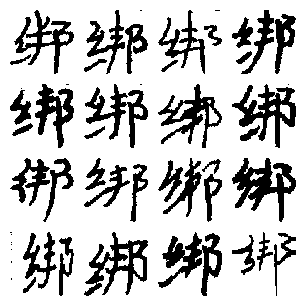 绑绑绑绑
绑绑绑绑
绑绑绑绑
绑绑绑绑